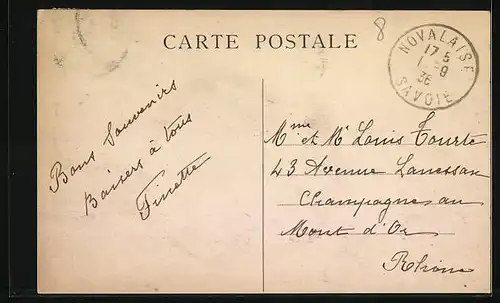 CARTE POSTALE
8
NOVALAISE
17 5
1 - 9
36
SAVOIE
Bons Souvenirs
Baisers à tous
Finette
Mme et Mr Louis Tourte
43 Avenue Lanessan
Champagne au
Mont d'Or
Rhône